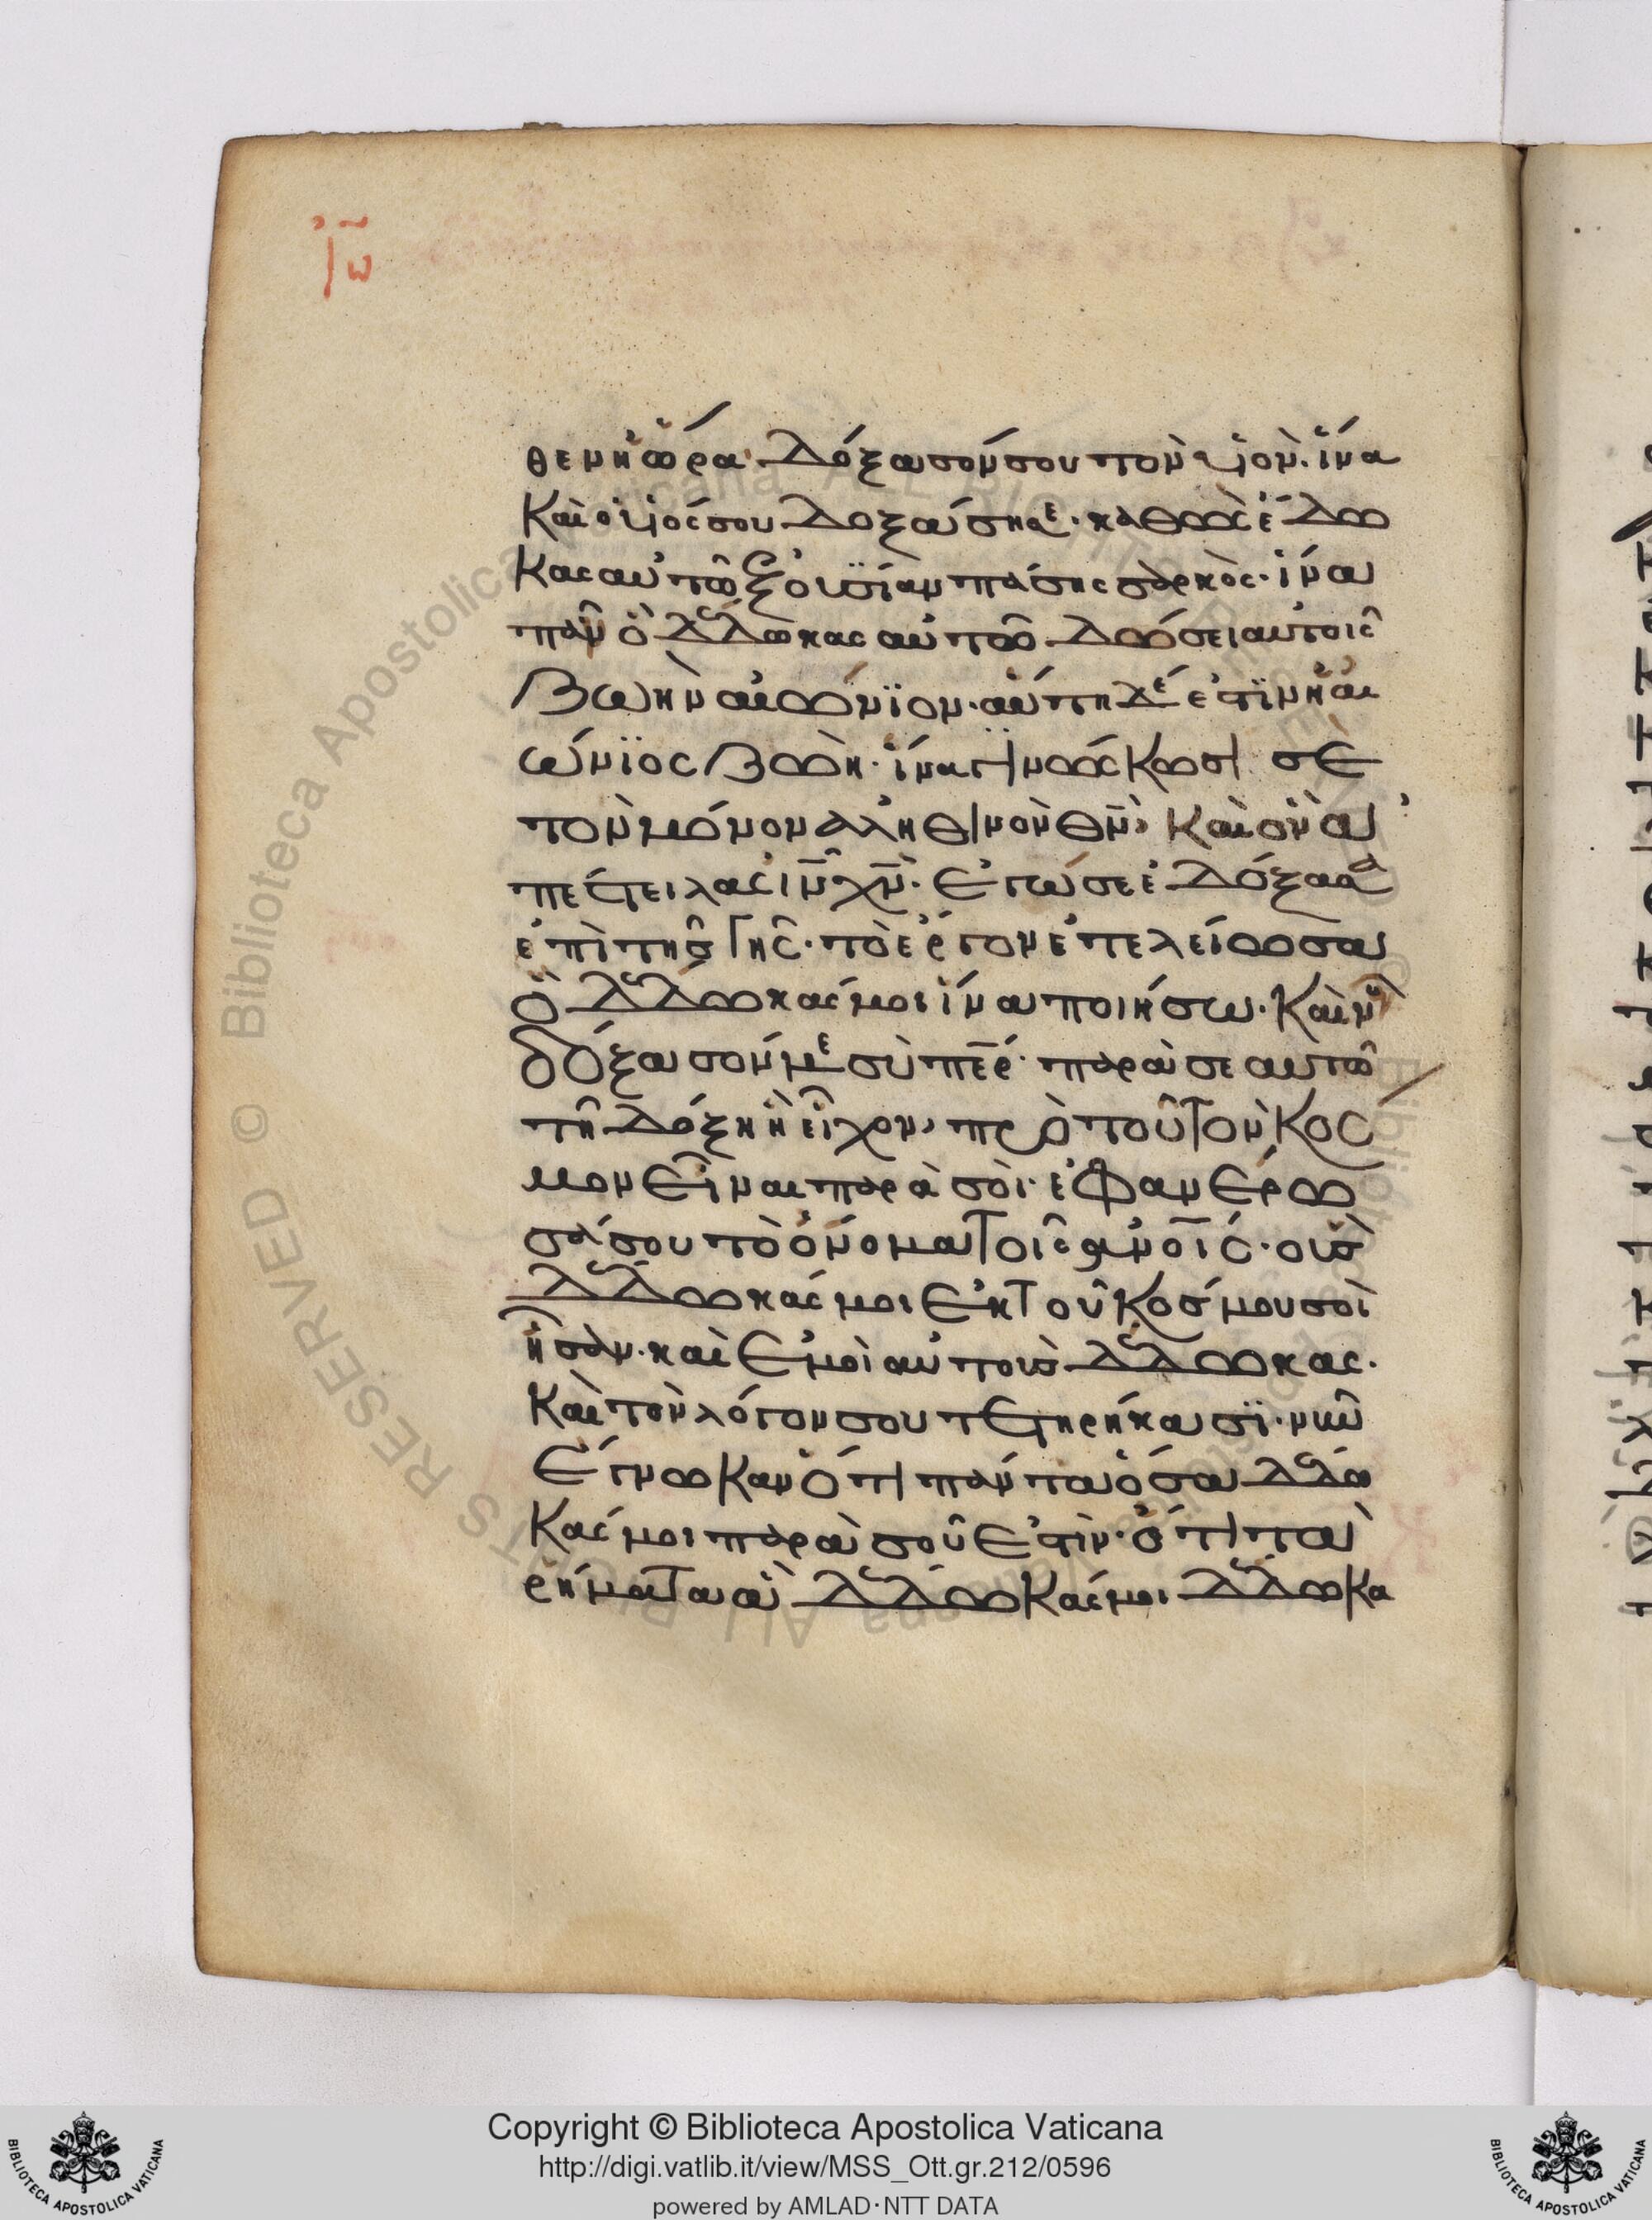 ἰω̃
θεν ἡ ὥρα· δόξασόν σου τὸν υἱὸν. ἵνα
καὶ ὁ υἱός σου δοξάση σε· καθὼς ἔδω
κας αὐτῶ ἐξουσΐαν πάσης σαρκὸς· ἵνα
πᾶν ὃ δέδωκας αὐτῶ δώσει αὐτοῖς
ζωὴν αἰώνϊον· αὕτη δέ ἐστϊν ἡ αἰ
ώνϊος ζωὴ· ἵνα γινώσκωσι σὲ
τὸν μόνον ἀληθινὸν θν̅· καὶ ὃν ἀ
πέστειλας ιν̅ χν̅· ἐγώ σε ἐδόξασα
ἐπὶ τῆς γῆς· τὸ ἔργον ἐτελείωσα
ὃ δέδωκάς μοι ἵνα ποιήσω· καὶ νῦν
δόξασόν με σὺ περ̅· παρὰ σεαυτῶ
τῆ δόξη ἣ εἶχον, πρὸ τοῦ τὸν κόσ
μον εἶναι παρὰ σοὶ· ἐφανέρω
σά σου τὸ ὄνομα τοῖς ανοις̅· οὓς
δέδωκάς μοι ἐκ τοῦ κόσμου σοὶ
ἦσαν· καὶ ἐμοὶ αὐτοὺς δέδωκας.
καὶ τὸν λόγον σου τετηρήκασϊ· νῦν
ἔγνωκαν ὅτι πάντα ὅσα δέδω
κάς μοι παρὰ σοῦ ἐστὶν· ὅτι τὰ
ρήματα ἃ δέδωκάς μοι δέδωκα
Copyright © Biblioteca Apostolica Vaticana
http://digi.vatlib.it/view/MSS_Ott.gr.212/0596
powered by AMLAD·NTT DATA